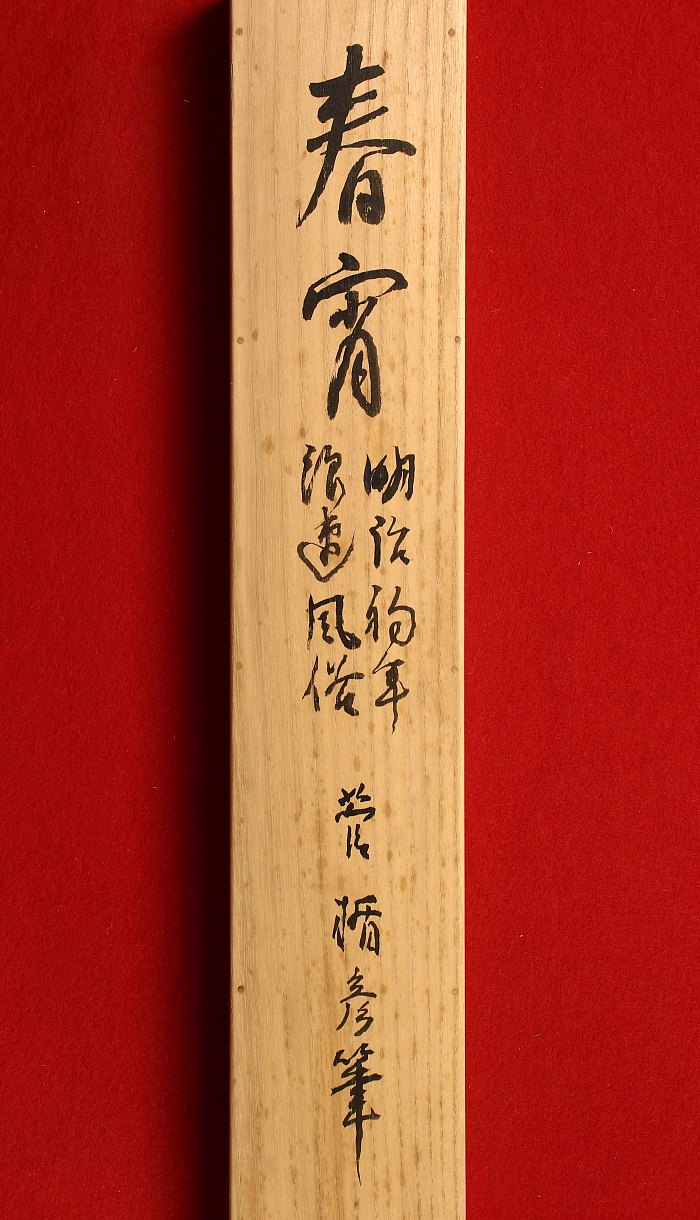 春宵
明治初年
浪速風俗
菅楯彦筆